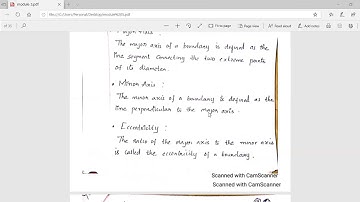 module 3.pdf
Major Axis :
The major axis of a boundary is defined as the
line segment connecting the two extreme points
of its diameter.
• Minor Axis :
The minor axis of a boundary is defined as the
line perpendicular to the major axis.
• Eccentricity :
The ratio of the major axis to the minor axis
is called the eccentricity of a boundary.
Scanned with CamScanner
Scanned with CamScanner